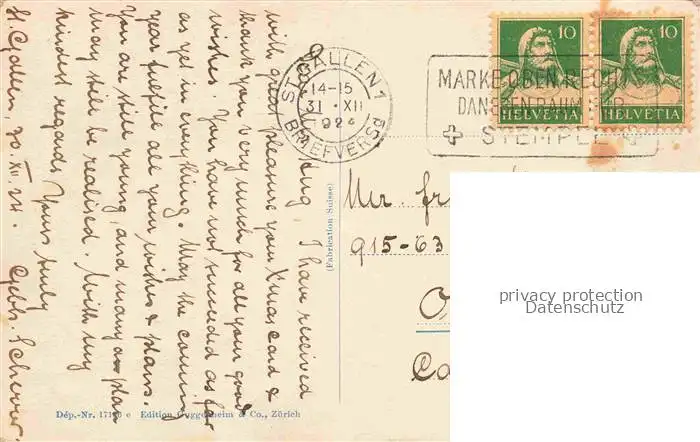 Aug I have received
with great pleasure your Xmas Card &
thank you very much for all your good
wishes. You have not succeeded as far
as yet in everything. May the coming
year fulfill all your wishes & plans.
You are still young, and many a plan
may still be realised. With my
kindest regards Yours truly
St. Gallen, 30. XII. 24. Gebh. Scherrer.
ST. GALLEN 1
14-15
31. XII
1924
BRIEFVERSD
MARKE OBEN RECHTS
DANEBEN RAUM FÜR
STEMPEL
10 10
HELVETIA HELVETIA
(Fabrication Suisse)
Mr. Fr
915-63
O
Ca
privacy protection
Datenschutz
Dép.-Nr. e Edition Guggenheim & Co., Zürich